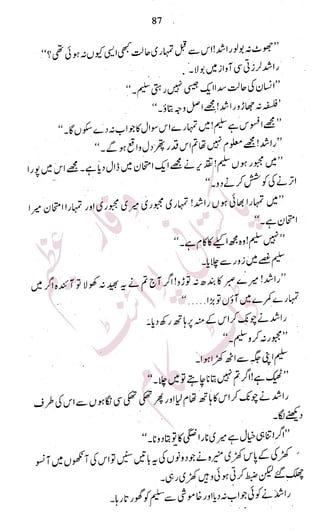 87
"جھوٹ نہ بولو راشد! اس سے قبل تمہاری حالت کبھی ایسی کیوں نہ ہوئی تھی؟"
راشد لرزتی سی آواز میں بولا۔
"انسان کی حالت سدا ایک جیسی نہیں رہتی سلیم۔"
"فلسفہ نہ جھاڑو راشد! مجھے اصل وجہ بتاؤ۔"
"مجھے افسوس ہے سلیم! میں تمہارے اس سوال کا جواب نہ دے سکوں گا۔"
"راشد! مجھے معلوم نہیں تھا تم اس قدر پتھر دل واقع ہو گے۔"
"میں مجبور ہوں سلیم! تقدیر نے مجھے ایک امتحان میں ڈال دیا ہے۔ مجھے اس میں پورا
اترنے کی کوشش کرنے دو۔"
"میں تمہارا بھائی ہوں راشد! تمہاری مجبوری میری مجبوری اور تمہارا امتحان میرا
امتحان ہے۔"
"نہیں سلیم! وہ مجھ اکیلے کا کام ہے۔"
سلیم غصے میں زور سے چلایا۔
"راشد! میرے صبر کا بندھ نہ توڑو! اگر آج تم نے یہ بھید نہ کھولا تو آئندہ اگر میں
تمہارے کمرے میں آؤں تو بڑا......"
راشد نے چونک کر اس کے منہ پر ہاتھ رکھ دیا۔
"مجبور نہ کرو سلیم۔"
سلیم اپنی جگہ سے اٹھ کھڑا ہوا۔
"ٹھیک ہے! اگر تم نہیں بتانا چاہتے تو میں چلا۔"
راشد نے چونک کر اس کا ہاتھ تھام لیا اور پھر تھکی تھکی سی نگاہوں سے اس کی طرف
دیکھنے لگا۔
"اگر اتنا ہی خیال ہے میری ناراضگی کا تو بتا دو نا۔"
کھڑکی کے پاس کھڑی منیرہ جو دونوں کی یہ باتیں سنیں تو اس کی آنکھوں میں آنسو
چھلک گئے لیکن ضبط کرتی ہوئی وہیں کھڑی رہی۔
راشد نے کوئی جواب نہ دیا اور خاموشی سے سلیم کو گھورتا رہا۔
وقار عظیم
پاکستانی پوائنٹ
ڈاٹ کام